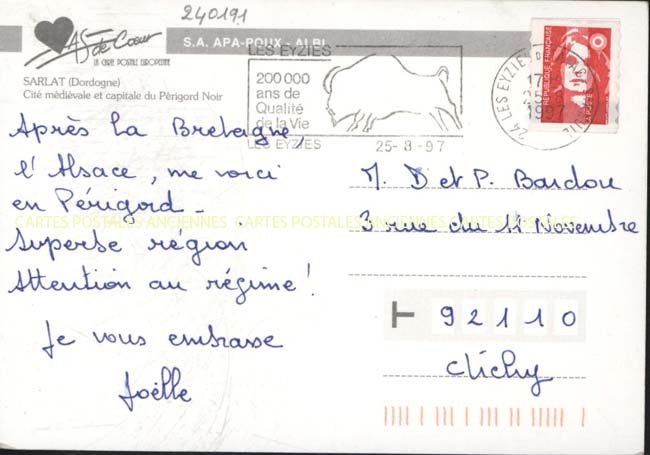 240191
As de Cœur
LA CARTE POSTALE EUROPEENNE
S.A. APA-POUX - ALBI
SARLAT (Dordogne)
Cité médiévale et capitale du Périgord Noir
LES EYZIES
200 000
ans de
Qualité
de la Vie
LES EYZIES
25-8-97
24 LES EYZIES
17
25-8
1997
REPUBLIQUE FRANÇAISE
LA POSTE
Après la Bretagne,
l'Alsace, me voici
en Périgord -
Superbe région
Attention au régime !
Je vous embrasse
Joëlle
M. D et P. Bardou
3 rue du 11 Novembre
92110
Clichy
CARTES POSTALES ANCIENNES CARTES POSTALES ANCIENNES CARTES POSTALES